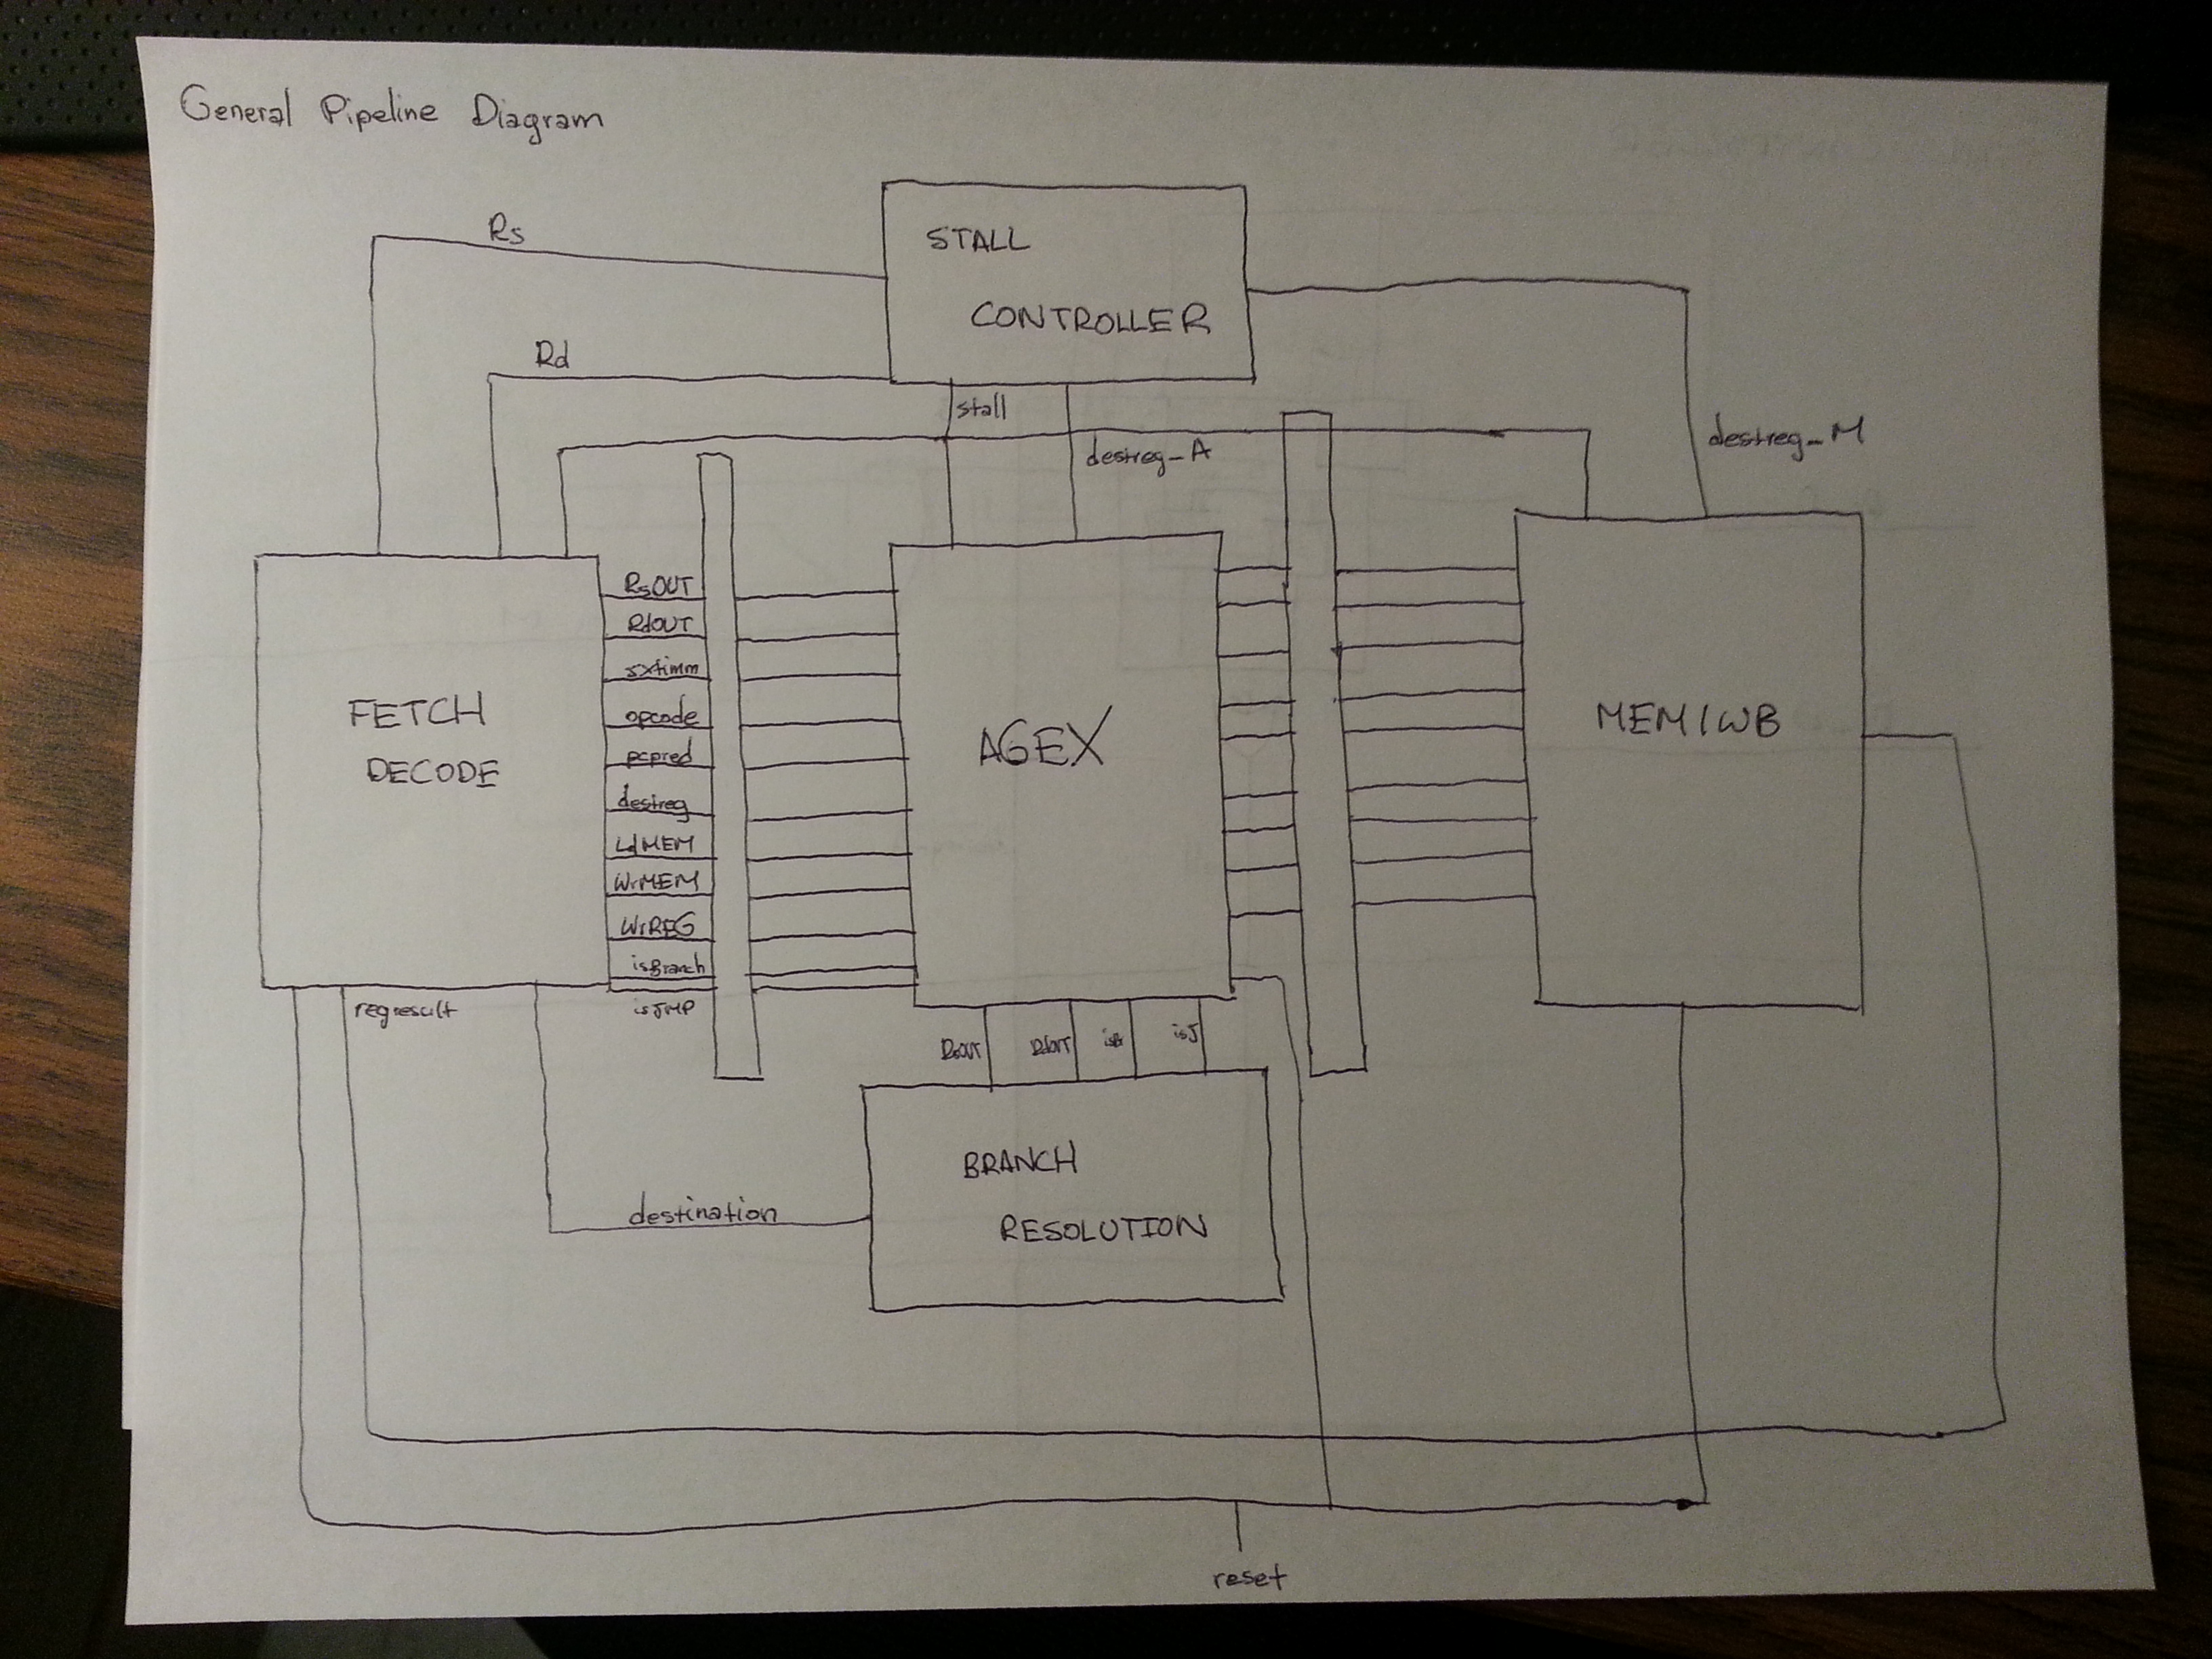 General Pipeline Diagram
Rs
STALL
CONTROLLER
Rd
stall
destreg_A
destreg_M
RsOUT
RdOUT
sxtimm
opcode
pcpred
destreg
LdMEM
WrMEM
WrREG
isBranch
isJMP
FETCH
DECODE
AGEX
MEM/WB
regresult
RsOUT
RdOUT
isB
isJ
BRANCH
RESOLUTION
destination
reset